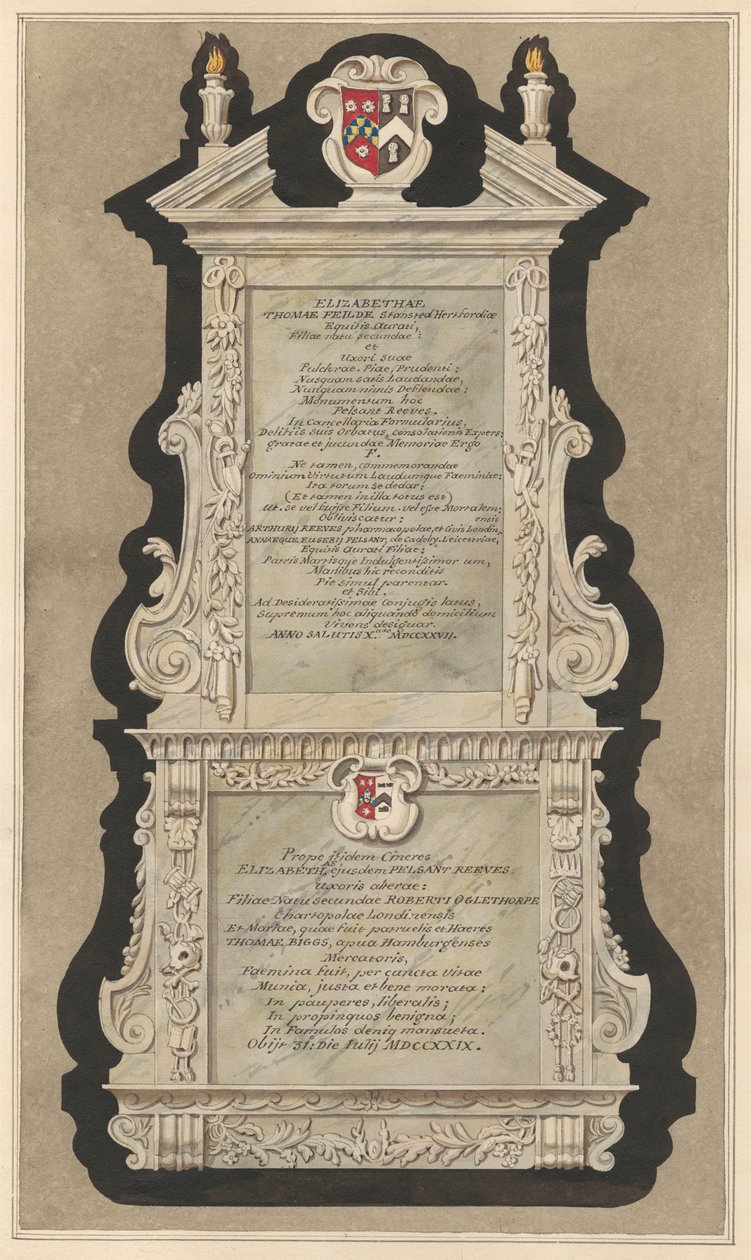 ELIZABETHAE
THOMAE FEILDE Stansted Hertfordiae
Equitis Aurati,
Filiae natu secundae:
et
Uxori suae
Pulchrae, Piae, Prudenti;
Nusquam satis Laudandae,
Nunquam nimis Deflendae;
Monumentum hoc
Pelsant Reeves.
In Cancellaria Formularius,
Delitiis suis Orbatus, consolationis Expers;
gratae et jucundae Memoriae Ergo
F.
Ne tamen, commemorandae
Ominium Virtutum Laudumque Faeminiae;
Ita torum se dedar;
(Et tamen in illa totus est)
Ut. se vel fuisse Filium. vel esse Mortalem;
Obliviscatur: ensis
ARTHURIJ REEVES pharmacopolae, et Civis Londin,
ANNAEQUE EUSEBIJ PELSANT, de Cadeby. Leicestriae,
Equitis Aurati Filiae;
Patris Matrisque Indulgentissimor um,
Manibus hic reconditis
Pie simul parentar.
et Sibi.
Ad Desideratissimae Conjugis latus,
Supremum hoc aliquando domicilium
Vivens designar.
ANNO SALUTIS X.ⁿᵃᵉ MDCCXXVII.
Prope itidem Cineres
ELIZABETHAE, ejusdem PELSANT REEVES
Uxoris alterae:
Filiae Natu secundae ROBERTI OGLETHORPE
Chartopolae Londinensis
Et Mariae, quae fuit patruelis et Haeres
THOMAE BIGGS, apua Hamburgenses
Mercatoris,
Faemina fuit, per cuncta Vitae
Munia, justa et bene morata;
In pauperes, liberalis;
In propinquos benigna;
In Famulos deniq mansueta.
Obijt 31º: Die Iulij MDCCXXIX.